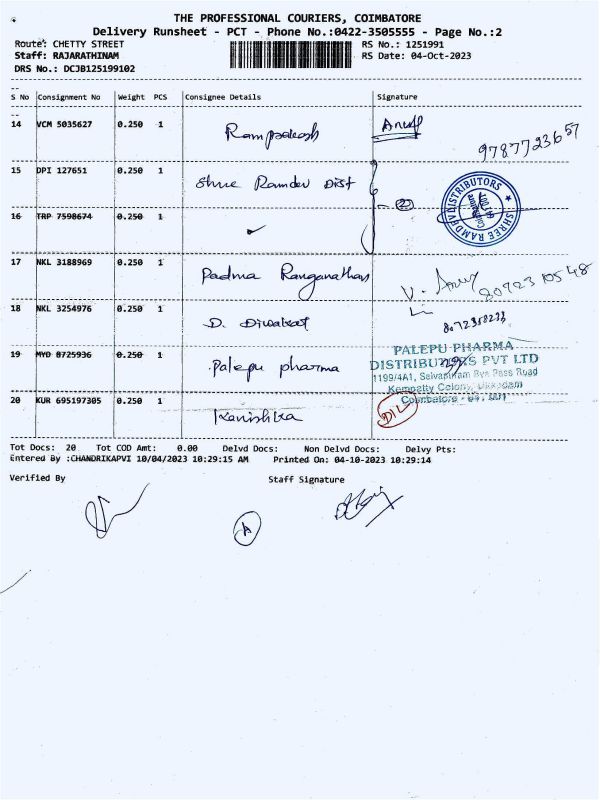 THE PROFESSIONAL COURIERS, COIMBATORE
Delivery Runsheet - PCT - Phone No.:0422-3505555 - Page No.:2
Route: CHETTY STREET RS No.: 1251991
Staff: RAJARATHINAM RS Date: 04-Oct-2023
DRS No.: DCJB125199102
S No Consignment No Weight PCS Consignee Details Signature
14 VCM 5035627 0.250 1 Ramprakash
9787723657
15 DPI 127651 0.250 1 Shree Ramdev Dist
SHREE RAMDEV DISTRIBUTORS
16 TRP 7598674 0.250 1
17 NKL 3188969 0.250 1 Padma Ranganathan
8072310548
18 NKL 3254976 0.250 1 D. Diwakar
19 MYD 0725936 0.250 1 Palepu pharma
PALEPU PHARMA
DISTRIBUTORS PVT LTD
1199/4A1, Selvapuram Bye Pass Road
Kempatty Colony, Ukkadam
Coimbatore
20 KUR 695197305 0.250 1 Kanishka
Tot Docs: 20 Tot COD Amt: 0.00 Delvd Docs: Non Delvd Docs: Delvy Pts:
Entered By :CHANDRIKAPVI 10/04/2023 10:29:15 AM Printed On: 04-10-2023 10:29:14
Verified By Staff Signature
A